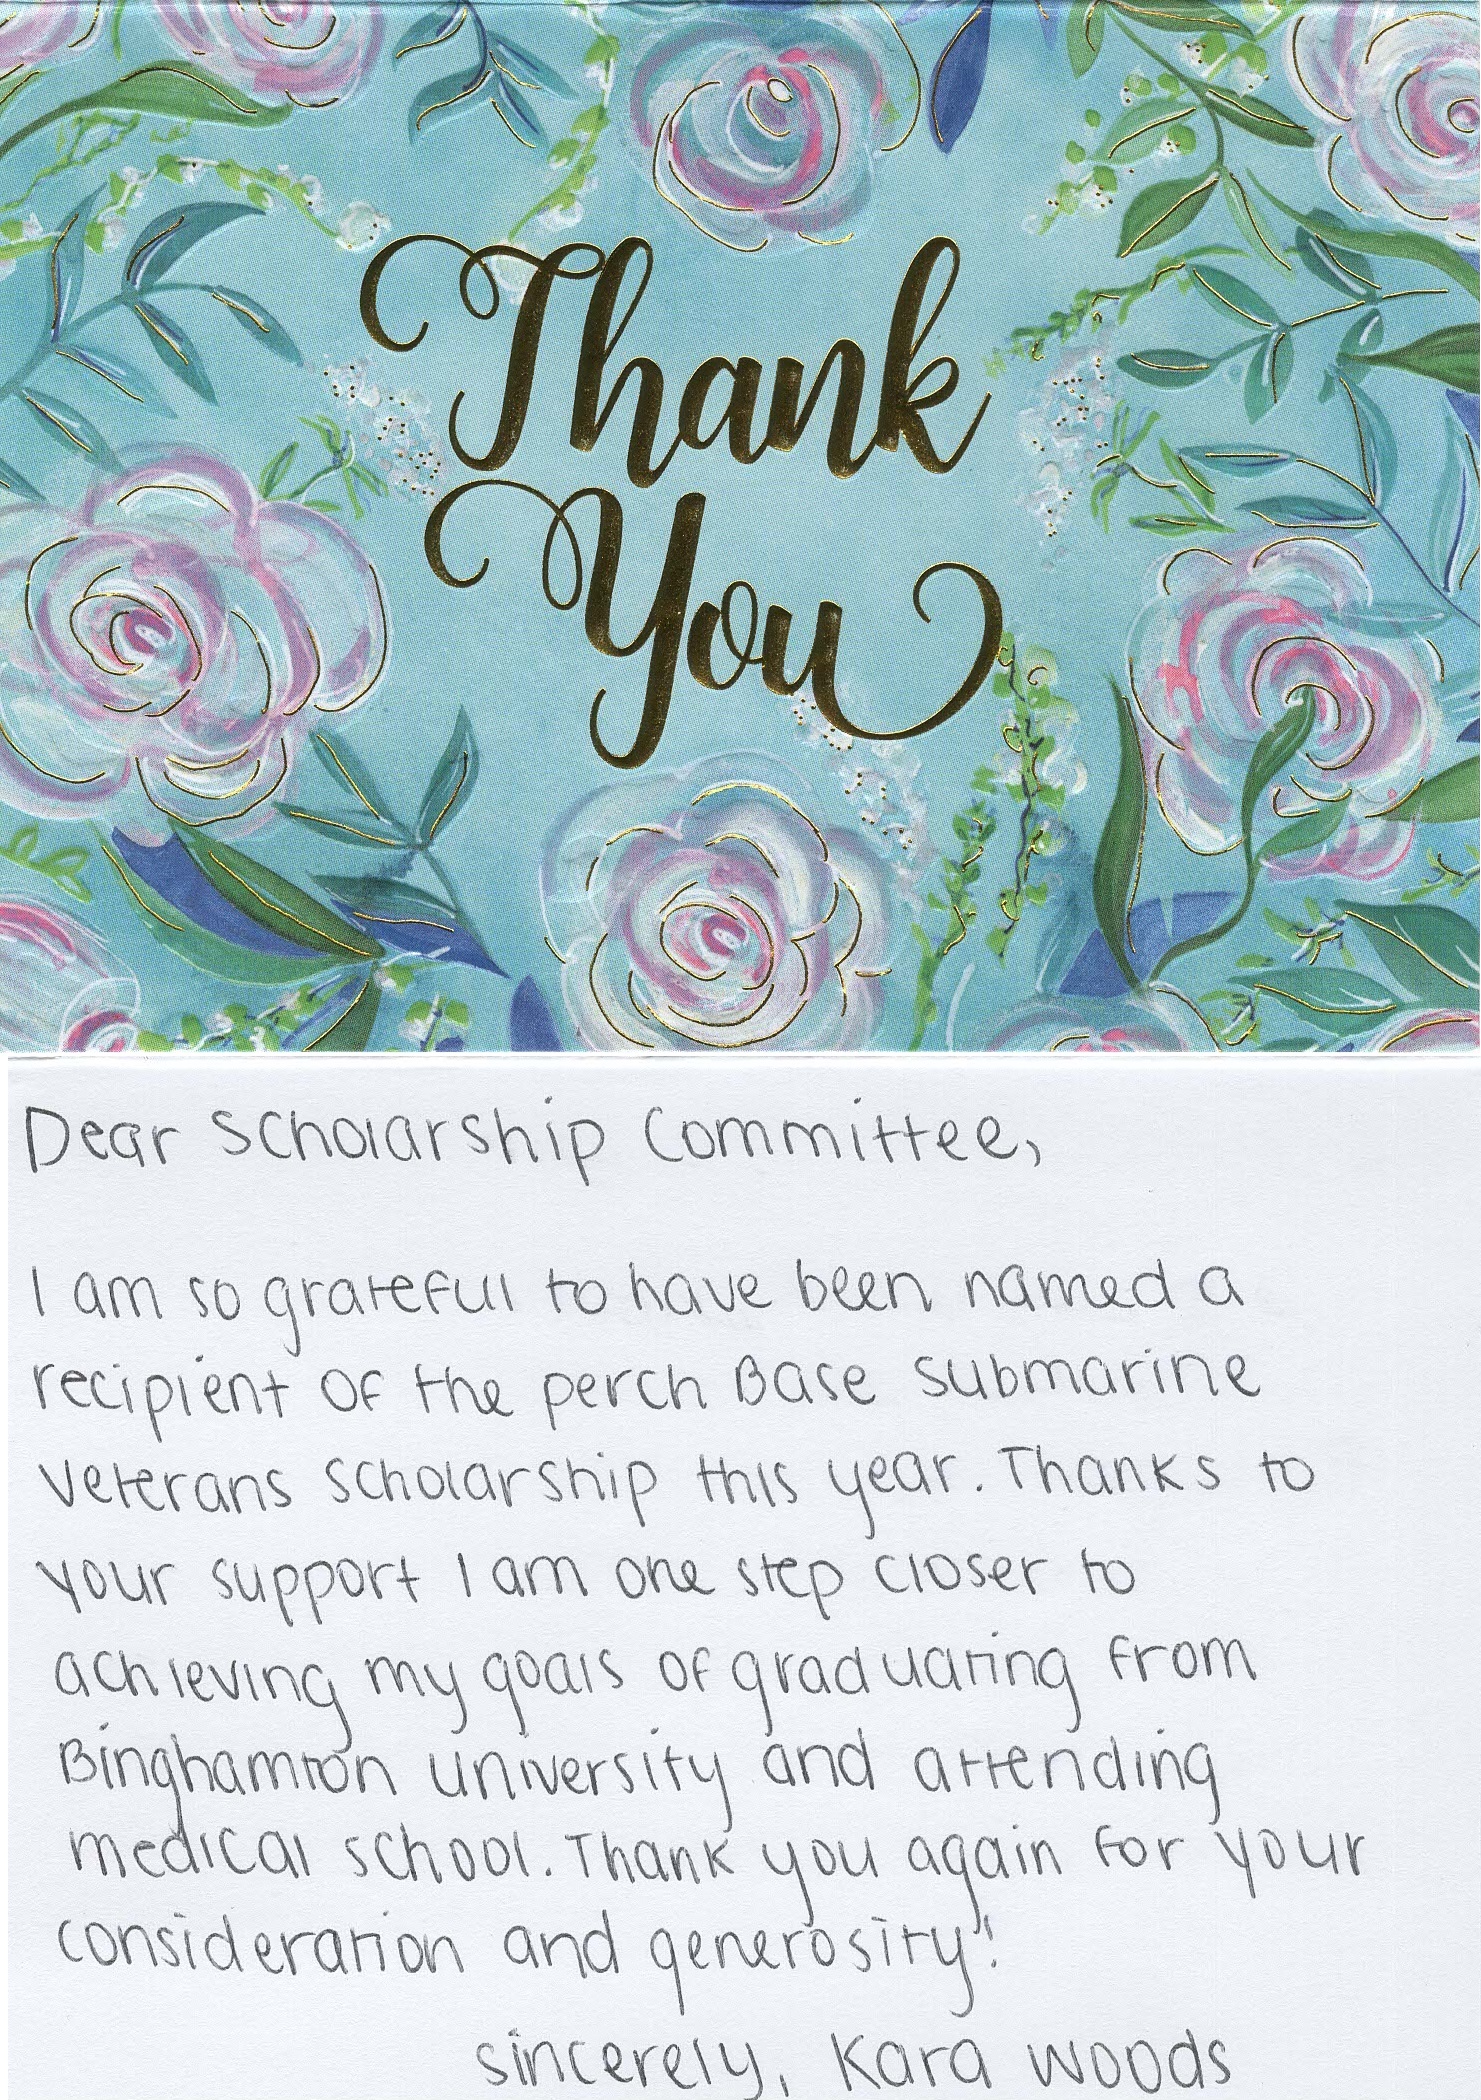 Thank
You
Dear Scholarship Committee,
I am so grateful to have been named a
recipient of the perch Base Submarine
Veterans Scholarship this year. Thanks to
your support I am one step closer to
achieving my goals of graduating from
Binghamton University and attending
medical school. Thank you again for your
consideration and generosity!
sincerely, Kara Woods